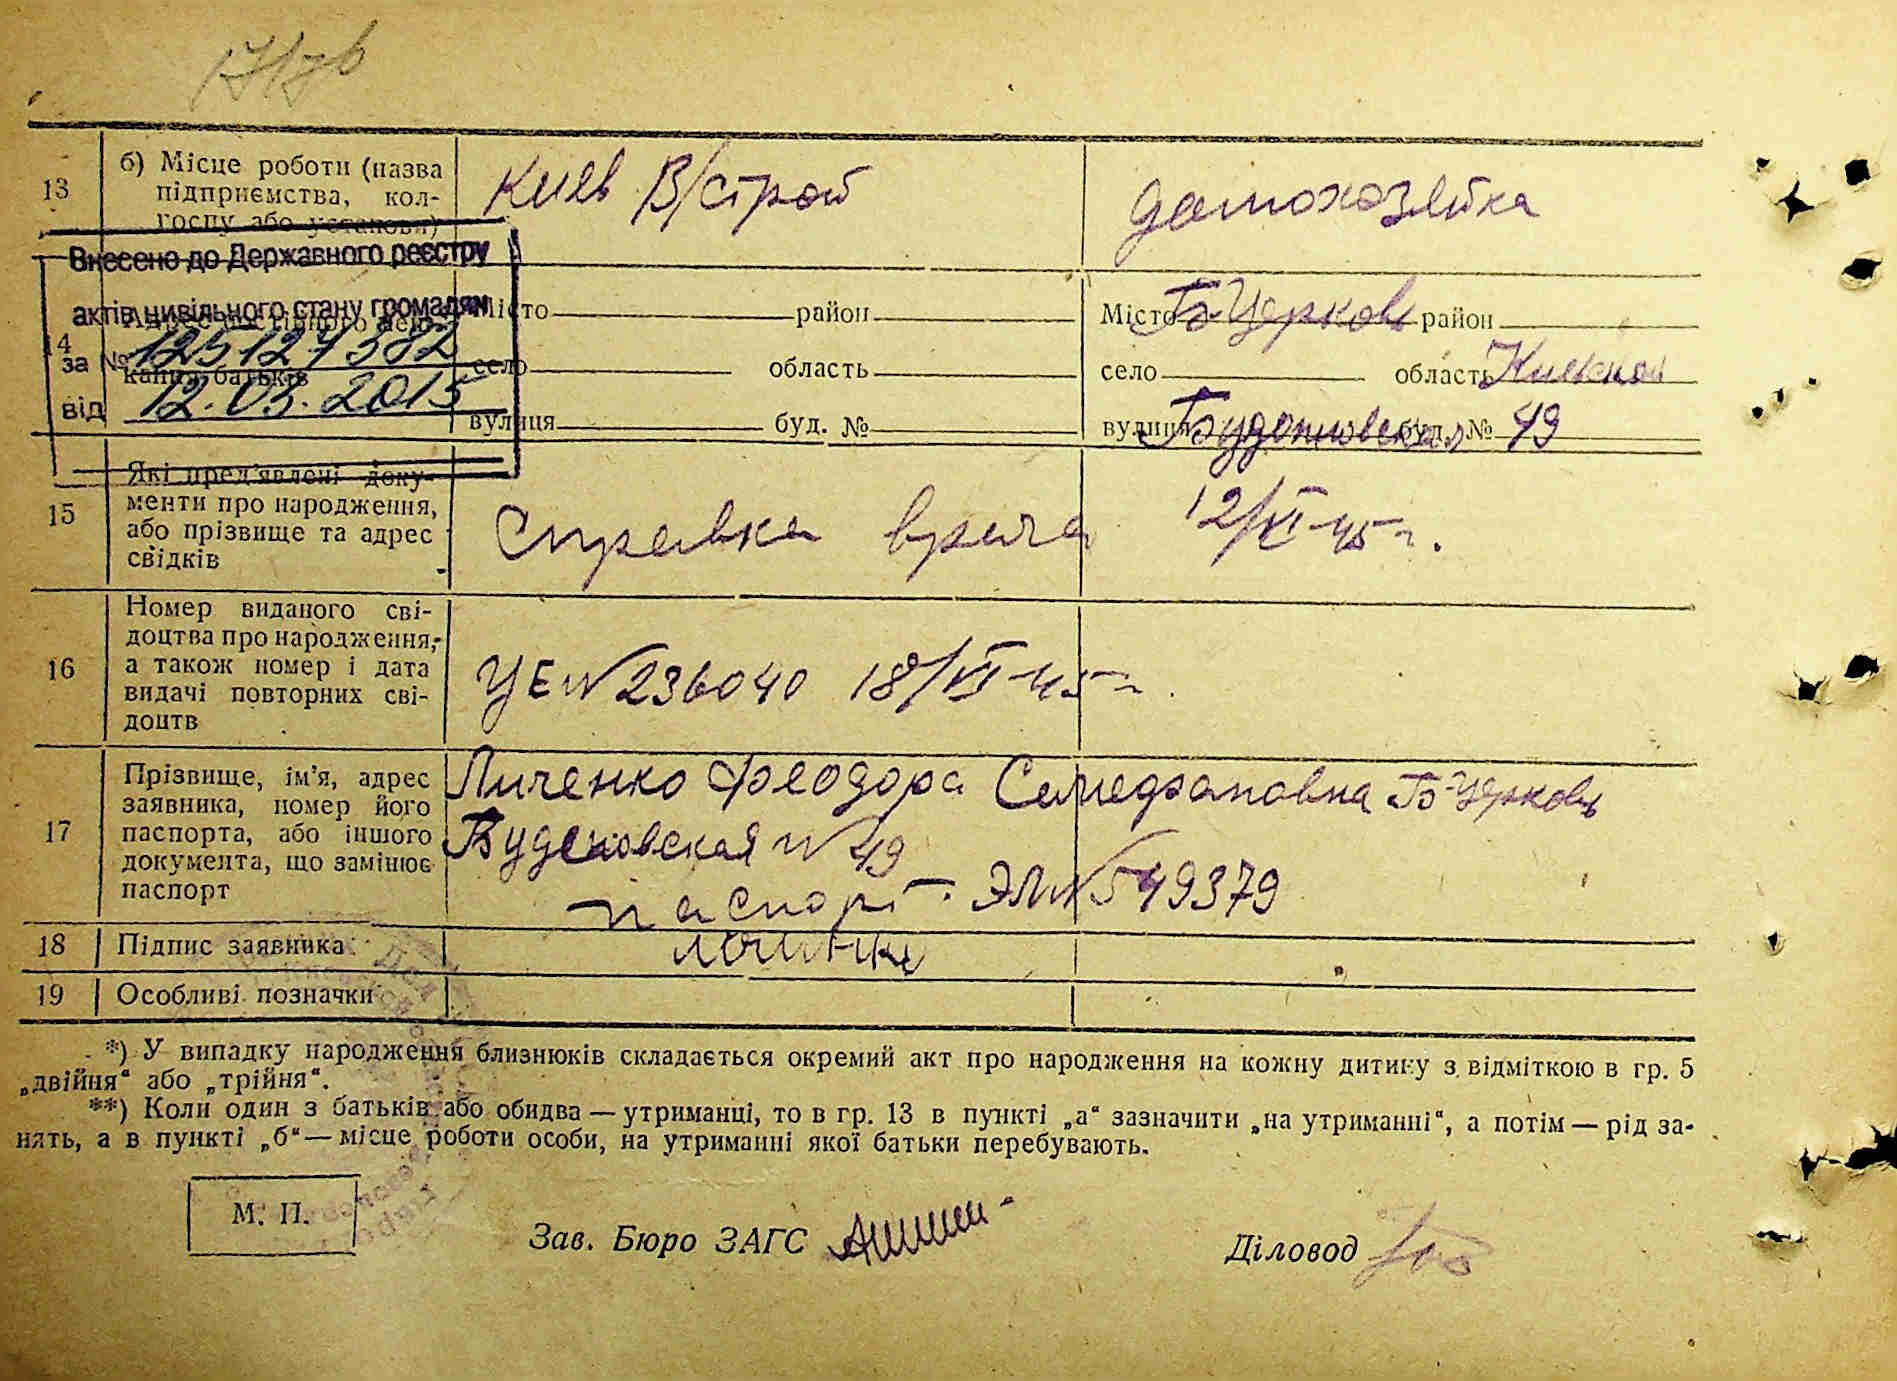 13
б) Місце роботи (назва
підприємства, кол-
госпу або установи)
Киев В/строй
домохозяйка
Внесено до Державного реєстру
актів цивільного стану громадян
за № 125127382
від 12.03.2015
14
Місто район
село область
вулиця буд. №
Місто Б-Церковь район
село область Киевская
вулиця Буденовская буд. № 49
15
Які пред'явлені доку-
менти про народження,
або прізвище та адрес
свідків
Справка врача 12/VI-45 г.
16
Номер виданого сві-
доцтва про народження,
а також номер і дата
видачі повторних сві-
доцтв
УЕ № 236040 18/VI-45 г.
17
Прізвище, ім'я, адрес
заявника, номер його
паспорта, або іншого
документа, що замінює
паспорт
Личенко Феодора Б-Церковь
Буденовская № 49
паспорт. № 549379
18 Підпис заявника
19 Особливі позначки
*) У випадку народження близнюків складається окремий акт про народження на кожну дитину з відміткою в гр. 5
„двійня“ або „трійня“.
**) Коли один з батьків або обидва — утриманці, то в гр. 13 в пункті „а“ зазначити „на утриманні“, а потім — рід за-
нять, а в пункті „б“ — місце роботи особи, на утриманні якої батьки перебувають.
М. П.
Зав. Бюро ЗАГС
Діловод